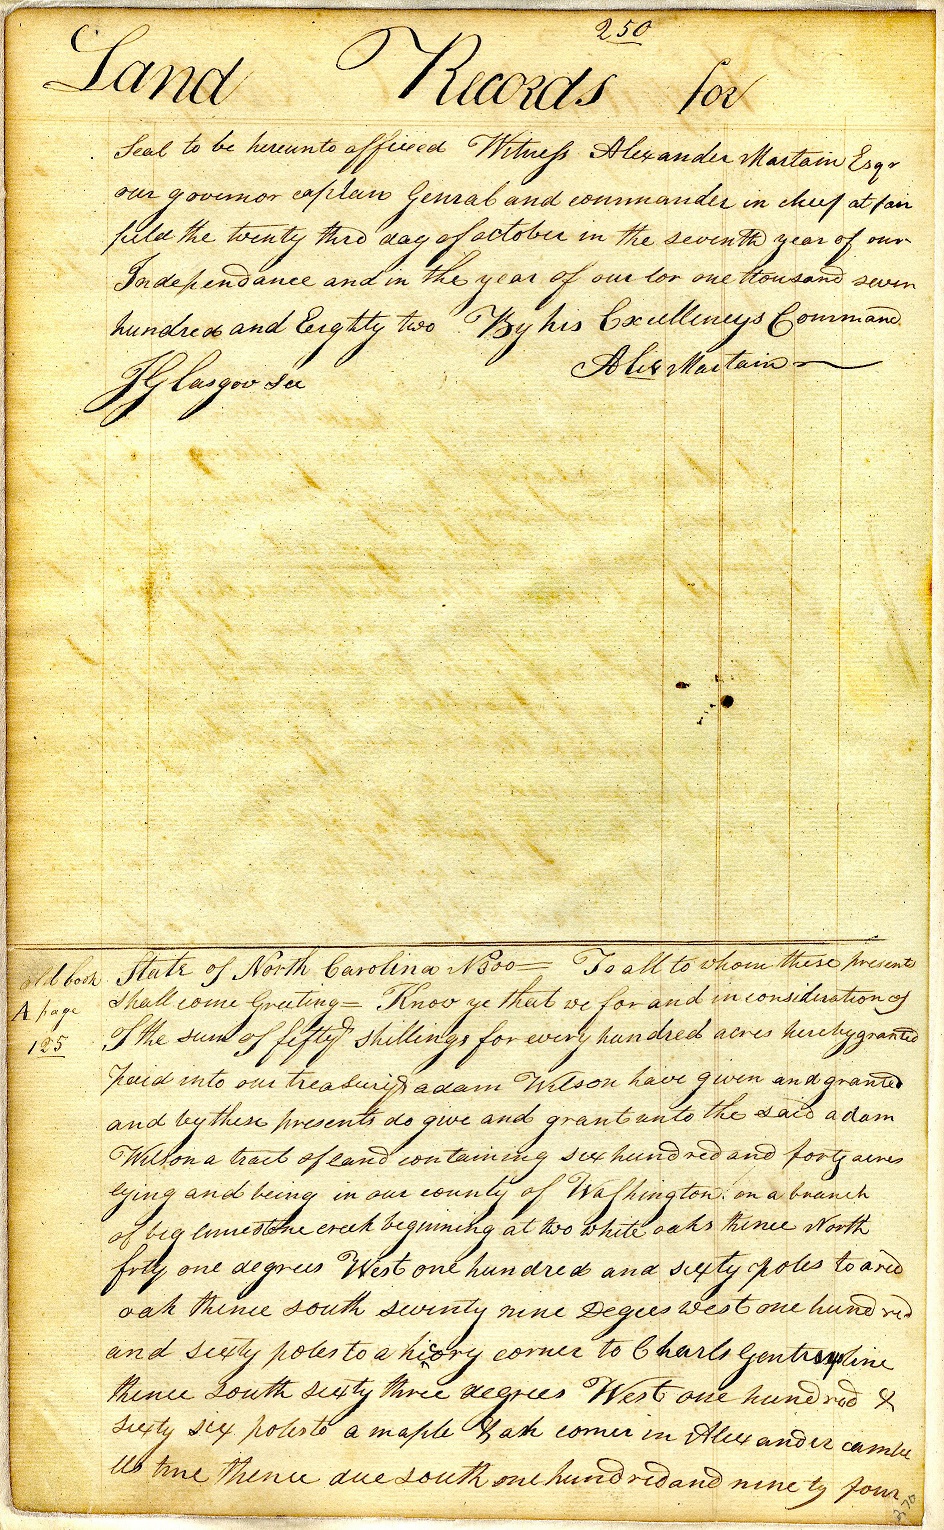 250
Land Records for
Seal to be hereunto affixed Witness Alexander Martain Esqr
our governor captain Genral and commander in cheif at fair
feild the twenty thrd day of october in the seventh year of our
Independance and in the year of our lor one thousand seven
hundred and Eerghty two By his Excellencys Command
JGlasgow Sec Alex Martain
old book State of North Carolina No 300 = To all to whom these presents
A page shall come Greeting = Know ye that we for and in consideration of
125 of the sum of fifty shillings for every hundred acres hereby granted
paid into our treasury adam Wilson have given and granted
and by these presents do give and grant unto the said adam
Wilson a tract of land containing six hundred and forty acres
lying and being in our county of Washington on a branch
of big limestone creek beginning at two white oaks thence North
frty one degrees West one hundred and sixty poles to a red
oak thence south seventy nine Degees west one hundred
and sixty poles to a hicory corner to Charls Gentrys line
thence south sixty three degrees West one hundred &
sixty six poles to a maple & ash corner in Alexander
line thence due south one hundred and ninety four
270